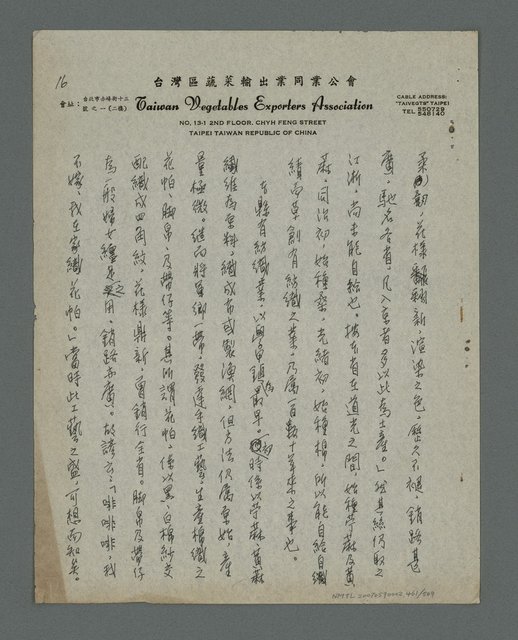 16
台灣區蔬菜輸出業同業公會
會址：台北市赤峰街十三號之一(二樓)
Taiwan Vegetables Exporters Association
CABLE ADDRESS:
"TAIVEGTS" TAIPEI
TEL 550729
546140
NO. 13-1 2ND FLOOR. CHYH FENG STREET
TAIPEI TAIWAN REPUBLIC OF CHINA
柔韌，花樣翻新，渲染之色，歷久不褪，銷路甚
廣，馳名各省，凡入京者多以此為土產。」然其絲仍取之
江浙，尚未能自給也。按本省在道光之間，始種苧麻及黃
麻，同治初，始種桑，光緒初，始種棉，所以能自給自織
績而草創有紡織之業，乃屬一百數十年來之事也。
本縣有紡織業，以學甲鎮為最早。初時係以苧麻、黃麻
纖維為原料，織成布或製漁網，但方法仍屬原始，產
量極微。繼而將軍鄉一帶，發達手織工藝，生產棉織之
花帕、腳帛、及帶仔等。其所謂花帕，係以黑、白棉紗交
配織成四角紋，花樣鼎新，曾銷行全省。腳帛及帶仔
為一般婦女纏足之用，銷路亦廣。故諺云：「啡啡啡，我
不嫁，我在家織花帕。」當時此工藝之盛，可想而知矣。
NMTL 20070590002 461/509